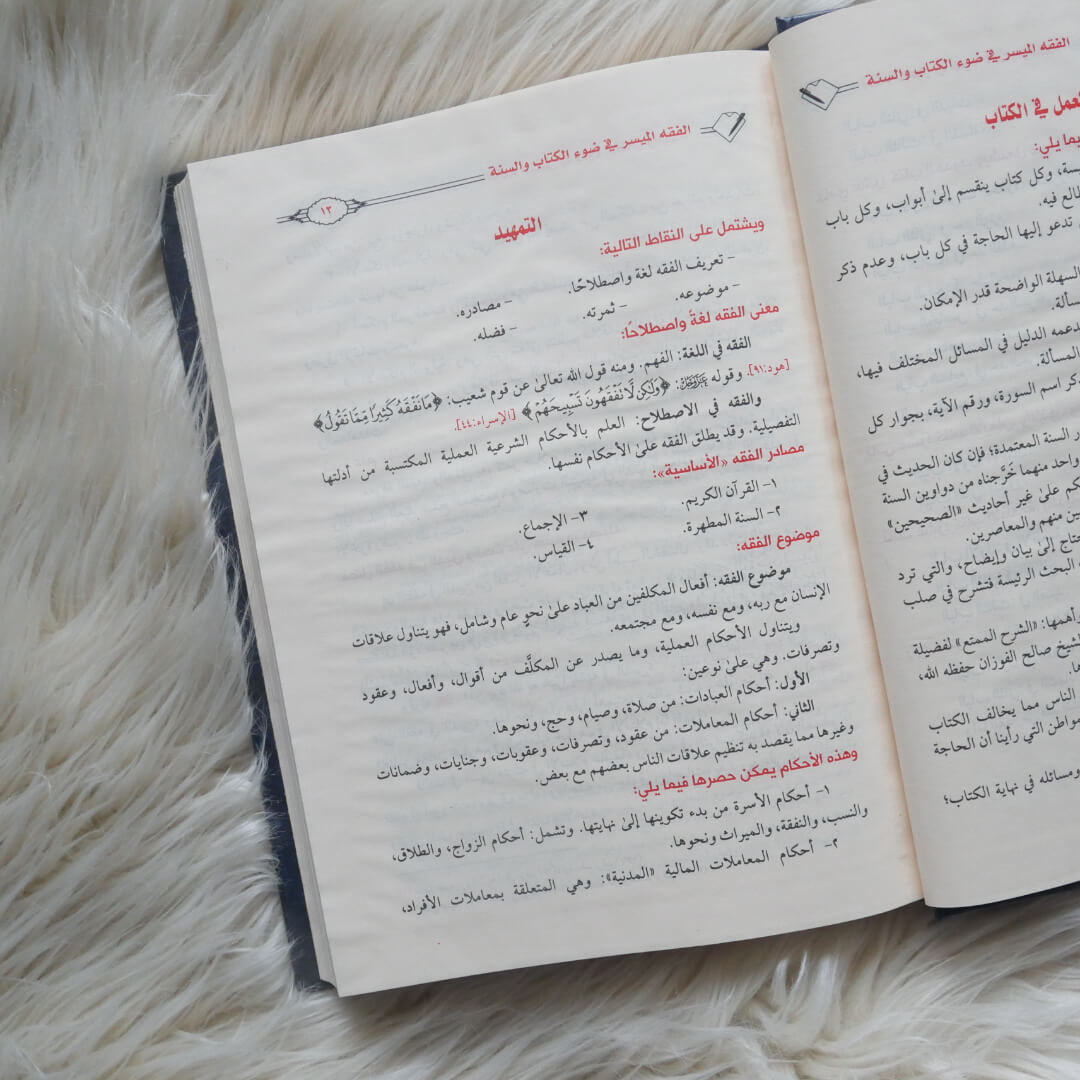 الفقه الميسر في ضوء الكتاب والسنة
في الكتاب
فيما يلي:
وكل كتاب ينقسم إلىٰ أبواب، وكل باب
فيه.
تدعو إليها الحاجة في كل باب، وعدم ذكر
السهلة الواضحة قدر الإمكان.
الدليل في المسائل المختلف فيها،
المسألة.
اسم السورة، ورقم الآية، بجوار كل
السنة المعتمدة؛ فإن كان الحديث في
واحد منهما خَرَّجناه من دواوين السنة
علىٰ غير أحاديث «الصحيحين»
منهم والمعاصرين.
إلىٰ بيان وإيضاح، والتي ترد
البحث الرئيسة فتشرح في صلب
«الشرح الممتع» لفضيلة
صالح الفوزان حفظه الله،
الناس مما يخالف الكتاب
التي رأينا أن الحاجة
ومسائله في نهاية الكتاب؛
الفقه الميسر في ضوء الكتاب والسنة
١٣
التمهيد
ويشتمل على النقاط التالية:
– تعريف الفقه لغة واصطلاحًا.
– موضوعه. – ثمرته. – مصادره.
– فضله.
معنى الفقه لغةً واصطلاحًا:
الفقه في اللغة: الفهم. ومنه قول الله تعالىٰ عن قوم شعيب: ﴿مَا نَفْقَهُ كَثِيرًا مِّمَّا تَقُولُ﴾
[هود:٩١]. وقوله عَزَّوَجَلَّ: ﴿وَلَٰكِن لَّا تَفْقَهُونَ تَسْبِيحَهُمْ﴾ [الإسراء:٤٤].
والفقه في الاصطلاح: العلم بالأحكام الشرعية العملية المكتسبة من أدلتها
التفصيلية. وقد يطلق الفقه علىٰ الأحكام نفسها.
مصادر الفقه «الأساسية»:
١– القرآن الكريم.
٢– السنة المطهرة. ٣– الإجماع.
٤– القياس.
موضوع الفقه:
موضوع الفقه: أفعال المكلفين من العباد علىٰ نحوٍ عام وشامل، فهو يتناول علاقات
الإنسان مع ربه، ومع نفسه، ومع مجتمعه.
ويتناول الأحكام العملية، وما يصدر عن المكلَّف من أقوال، وأفعال، وعقود
وتصرفات. وهي علىٰ نوعين:
الأول: أحكام العبادات: من صلاة، وصيام، وحج، ونحوها.
الثاني: أحكام المعاملات: من عقود، وتصرفات، وعقوبات، وجنايات، وضمانات
وغيرها مما يقصد به تنظيم علاقات الناس بعضهم مع بعض.
وهذه الأحكام يمكن حصرها فيما يلي:
١– أحكام الأسرة من بدء تكوينها إلىٰ نهايتها. وتشمل: أحكام الزواج، والطلاق،
والنسب، والنفقة، والميراث ونحوها.
٢– أحكام المعاملات المالية «المدنية»: وهي المتعلقة بمعاملات الأفراد،